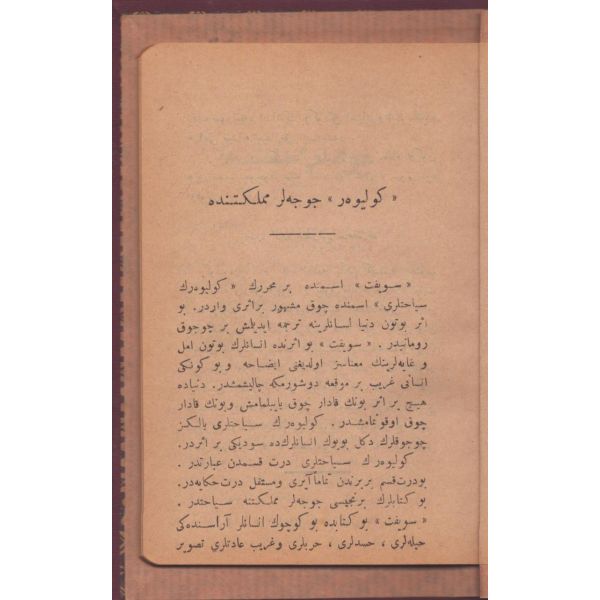 « كوليوه‌ر » جوجه‌لر مملكتنده
« سويفت » اسمنده بر محررك « كوليوه‌رك
سياحتلرى » اسمنده چوق مشهور بر اثرى واردر. بو
اثر بوتون دنيا لسانلرينه ترجمه ايديلمش بر چوجوق
رومانيدر . « سويفت » بو اثرنده انسانلرك بوتون امل
و غايه‌لرينك معناسز اولديغنى ايضاحه و بو كونكى
انسانى غريب بر موقعه دوشورمكه چاليشمشدر. دنياده
هيچ بر اثر بونك قادار چوق ياپيلمامش و بونك قادار
چوق اوقونمامشدر . كوليوه‌ر ك سياحتلرى يالكز
چوجوقلرك دكل بويوك انسانلرك‌ده سوديكى بر اثردر.
كوليوه‌ر ك سياحتلرى درت قسمدن عبارتدر .
بودرت قسم بربرندن تماماً آيرى و مستقل درت حكايه‌در.
بو كتابلرك برنجيسى جوجه‌لر مملكتنه سياحتدر .
« سويفت » بو كتابده بو كوچوك انسانلر آراسنده‌كى
حيله‌لرى ، حسدلرى ، حربلرى و غريب عادتلرى تصوير